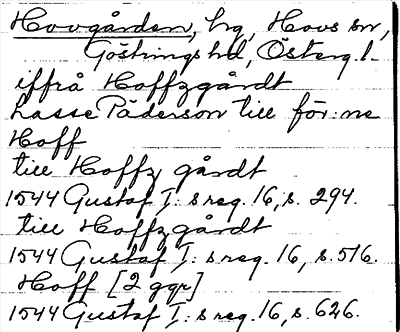 Hovgården, hg, Hovs sn,
Göstrings hd, Österg.l.
iffrå Hoffzgårdt
Lasse Päderson till för:ne
Hoff
till Hoffz gårdt
1544 Gustaf I: s reg. 16, s. 294.
till Hoffzgårdt
1544 Gustaf I: s reg. 16, s. 516.
Hoff [2 ggr]
1544 Gustaf I: s reg. 16, s. 626.